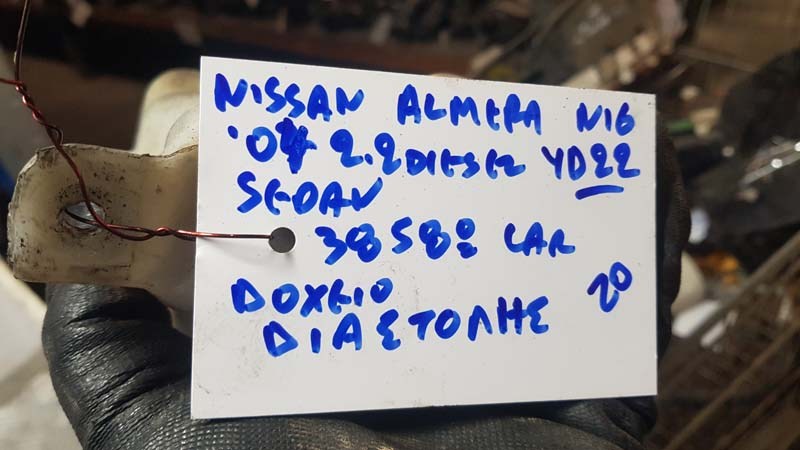 NISSAN ALMEPA N16
'04 2.2 DIESEL YD22
SEDAN
38582 CAR
ΔΟΧΕΙΟ 20
ΔΙΑΣΤΟΛΗΣ